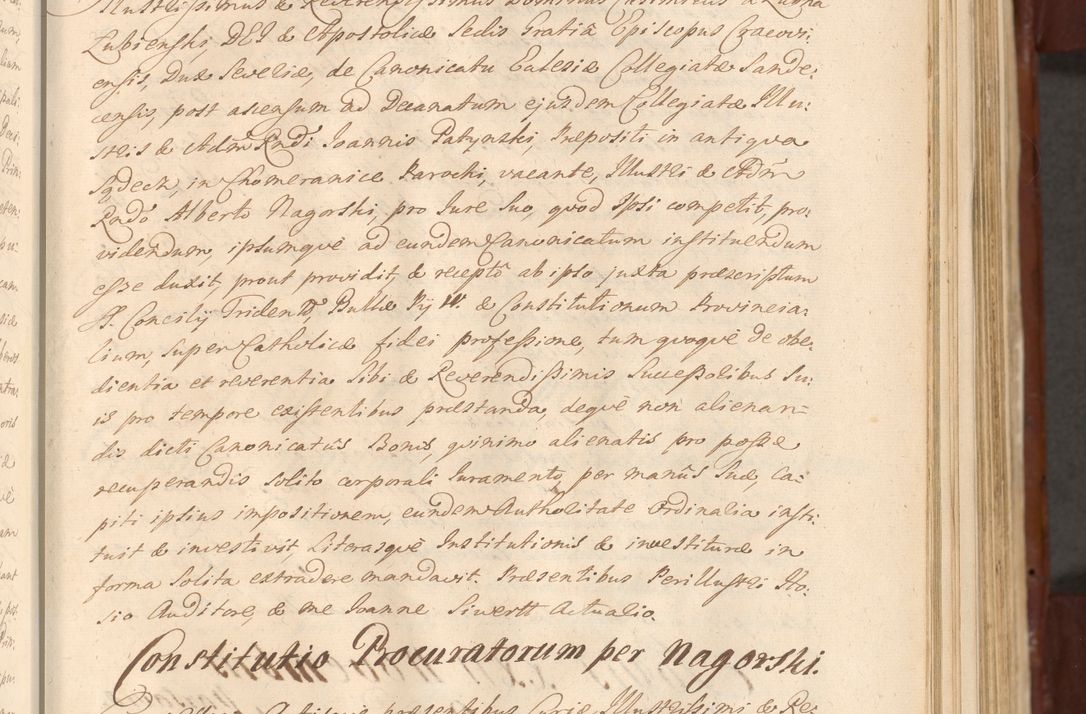 Illustrissimus & Reverendissimus Dominus Casimirus a Lubna
Łubienski, DEI & Apostolicæ Sedis Gratia Episcopus Cracovi:
ensis, Dux Severiæ, de Canonicatu Eclesiæ Collegiatæ Sande:
censis, post ascensum ad Decanatum ejusdem Collegiatæ Illu:
stris & Adm Rndi Joannis Patynski, Præpositi in antiqua
Sądecz, in Chomeranice Parochi, vacante, Illustri & Adm
Rndo Alberto Nagorski, pro Jure Suo, quod Ipsi competit, pro:
videndum, ipsumquè ad eundem Canonicatum instituendum
esse duxit, prout providit, & recepta ab ipso juxta præscriptum
S. Concilij Tridenti, Bullæ Pij IV. & Constitutionum Provincia:
lium, super Catholicæ fidei professione, tum quoquè de obe:
dientia et reverentia Sibi & Reverendissimis Successoribus Su:
is pro tempore existentibus præstanda, dequè non alienan=
dis dicti Canonicatûs Bonis, quinimo alienatis pro posse
recuperandis solito corporali Juramento, per manûs Suæ, ca:
piti ipsius impositionem, eundem Authoritate Ordinaria insti:
tuit & investivit Literasquè Institutionis & investituræ in
forma solita extradere mandavit. Præsentibus Perillustri Ho:
sio Auditore, & me Joanne Siwertt Actuario.
Constitutio Procuratorum per Nagorski.
præsentibus Curiæ Illustrissimi & Re: